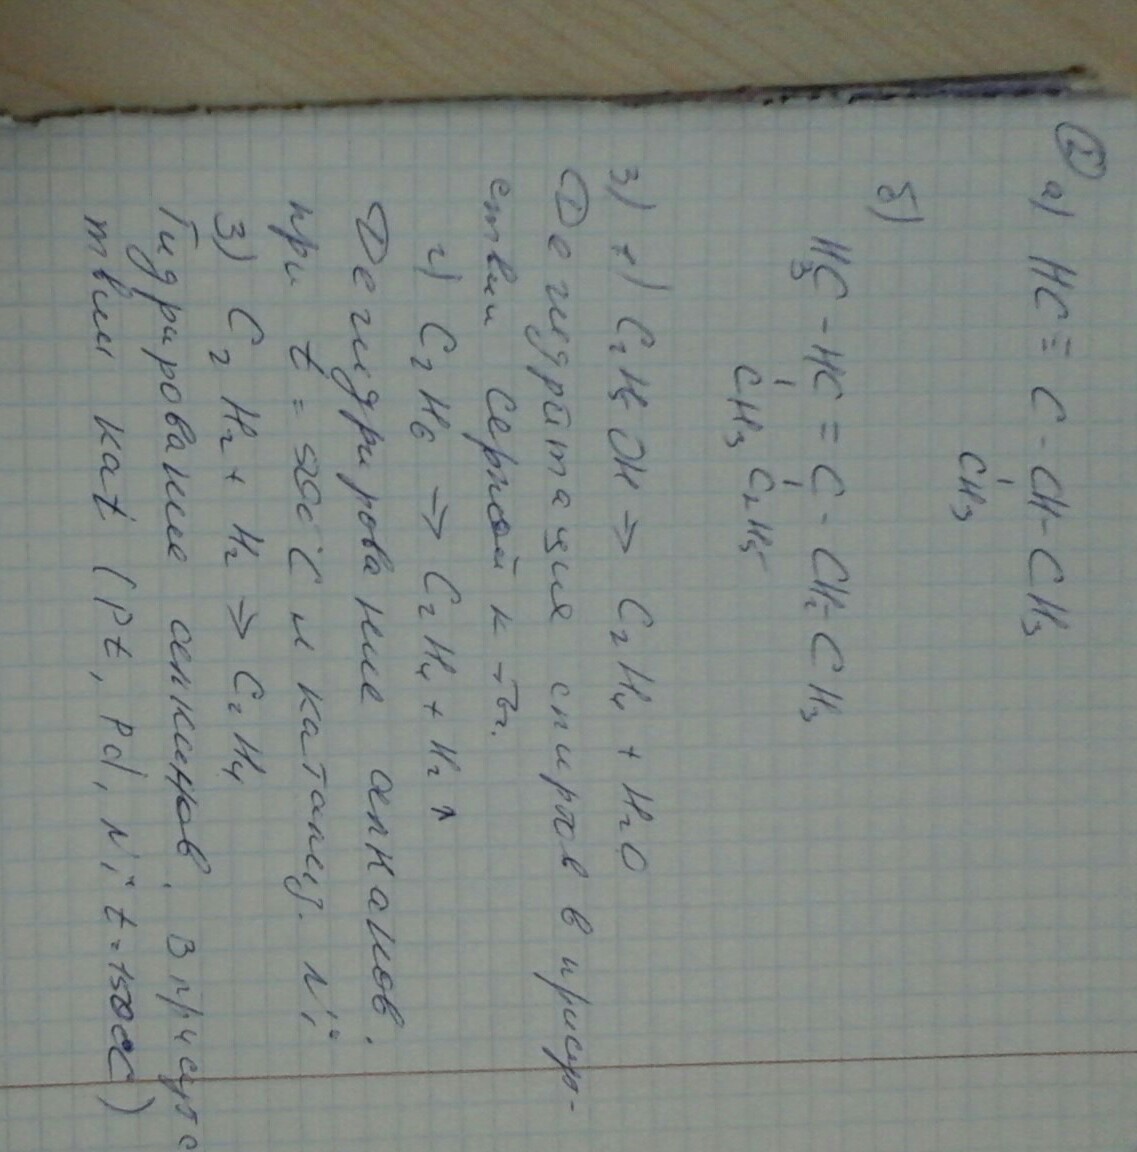 ② а) HC ≡ C - CH - CH₃
CH₃
б)
H₃C - HC = C - CH₂ - CH₃
CH₃ C₂H₅
3) 1) C₂H₅OH ⇒ C₂H₄ + H₂O
Дегидратация спиртов в присут-
ствии серной к-ты.
2) C₂H₆ ⇒ C₂H₄ + H₂↑
Дегидрирование алканов.
при t = 500°C и катализ. Ni
3) C₂H₂ + H₂ ⇒ C₂H₄
Гидрирование алкенов. В присутс
твии kat (Pt, Pd, Ni t=150°C)